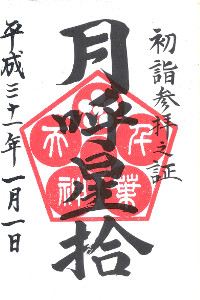 初詣参拝之証
月呼星拾
平成三十一年一月一日
千葉天神